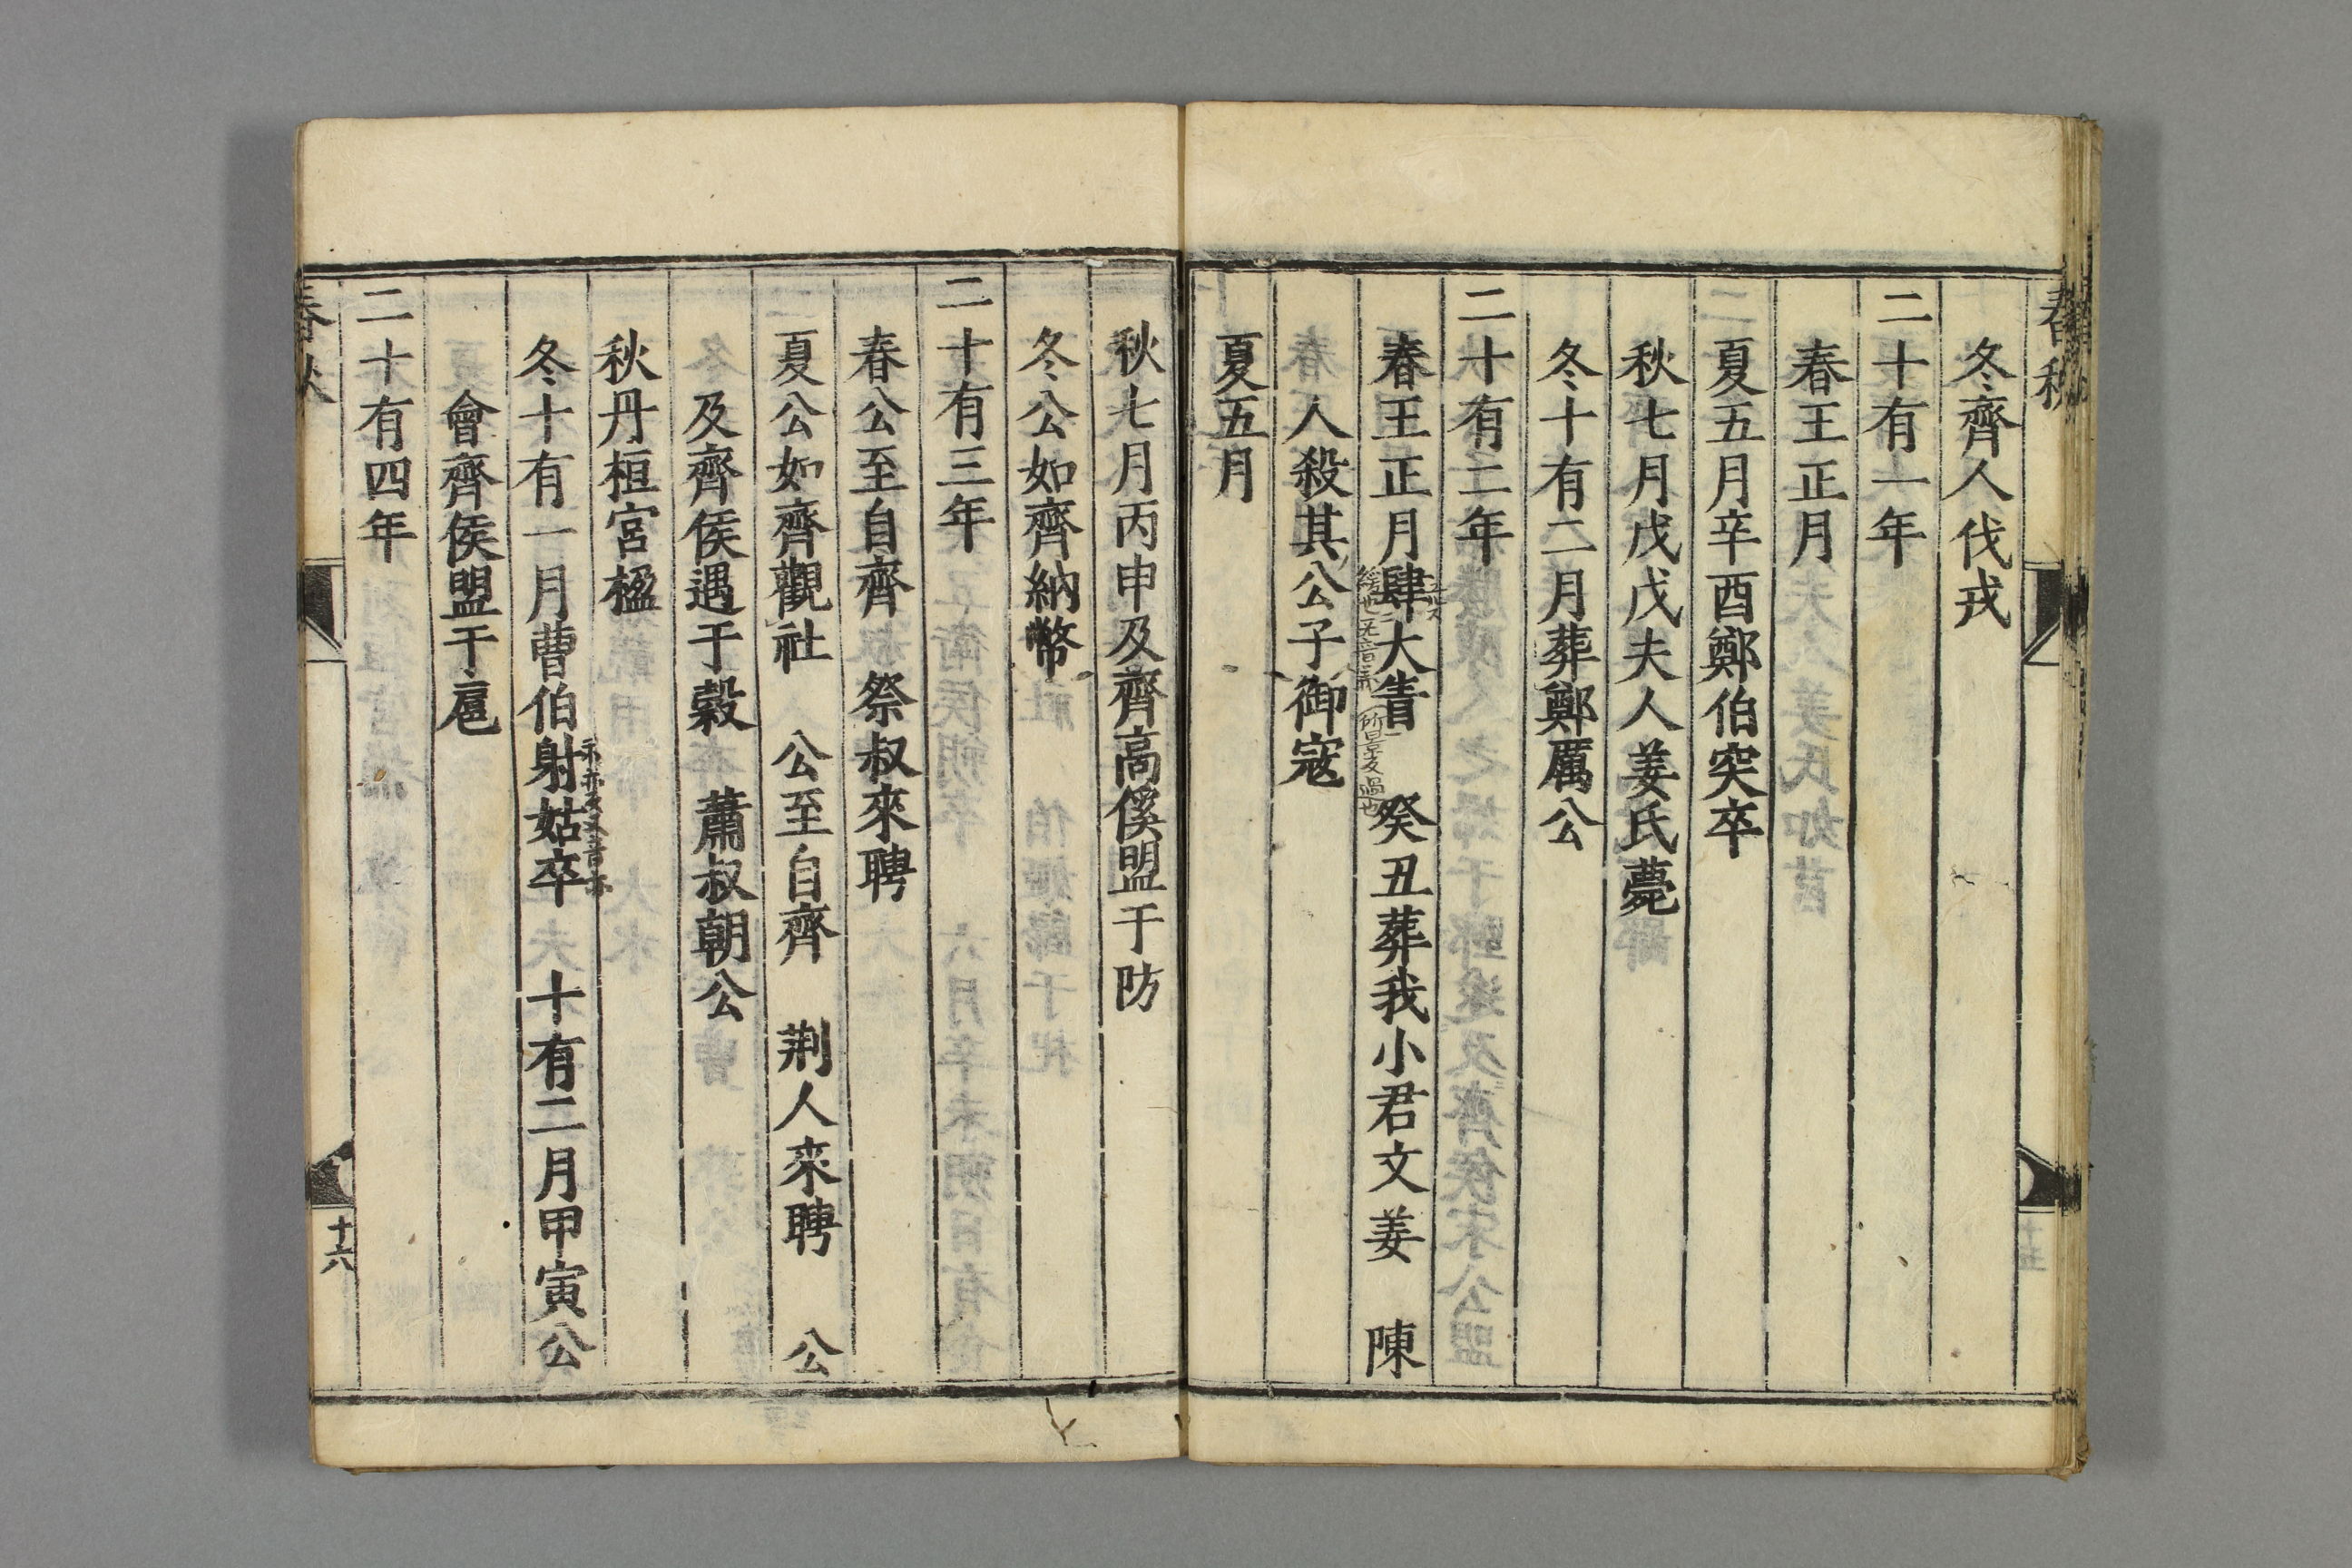 春秋
冬齊人伐戎
二十有一年
春王正月
夏五月辛酉鄭伯突卒
秋七月戊戌夫人姜氏薨
冬十有二月葬鄭厲公
二十有二年
春王正月肆大眚 癸丑葬我小君文姜 陳
人殺其公子御寇
夏五月
秋七月丙申及齊高傒盟于防
冬公如齊納幣
二十有三年
春公至自齊 祭叔來聘
夏公如齊觀社 公至自齊 荆人來聘 公
及齊侯遇于穀 蕭叔朝公
秋丹桓宮楹
冬十有一月曹伯射姑卒 十有二月甲寅公
會齊侯盟于扈
二十有四年
春秋
十六